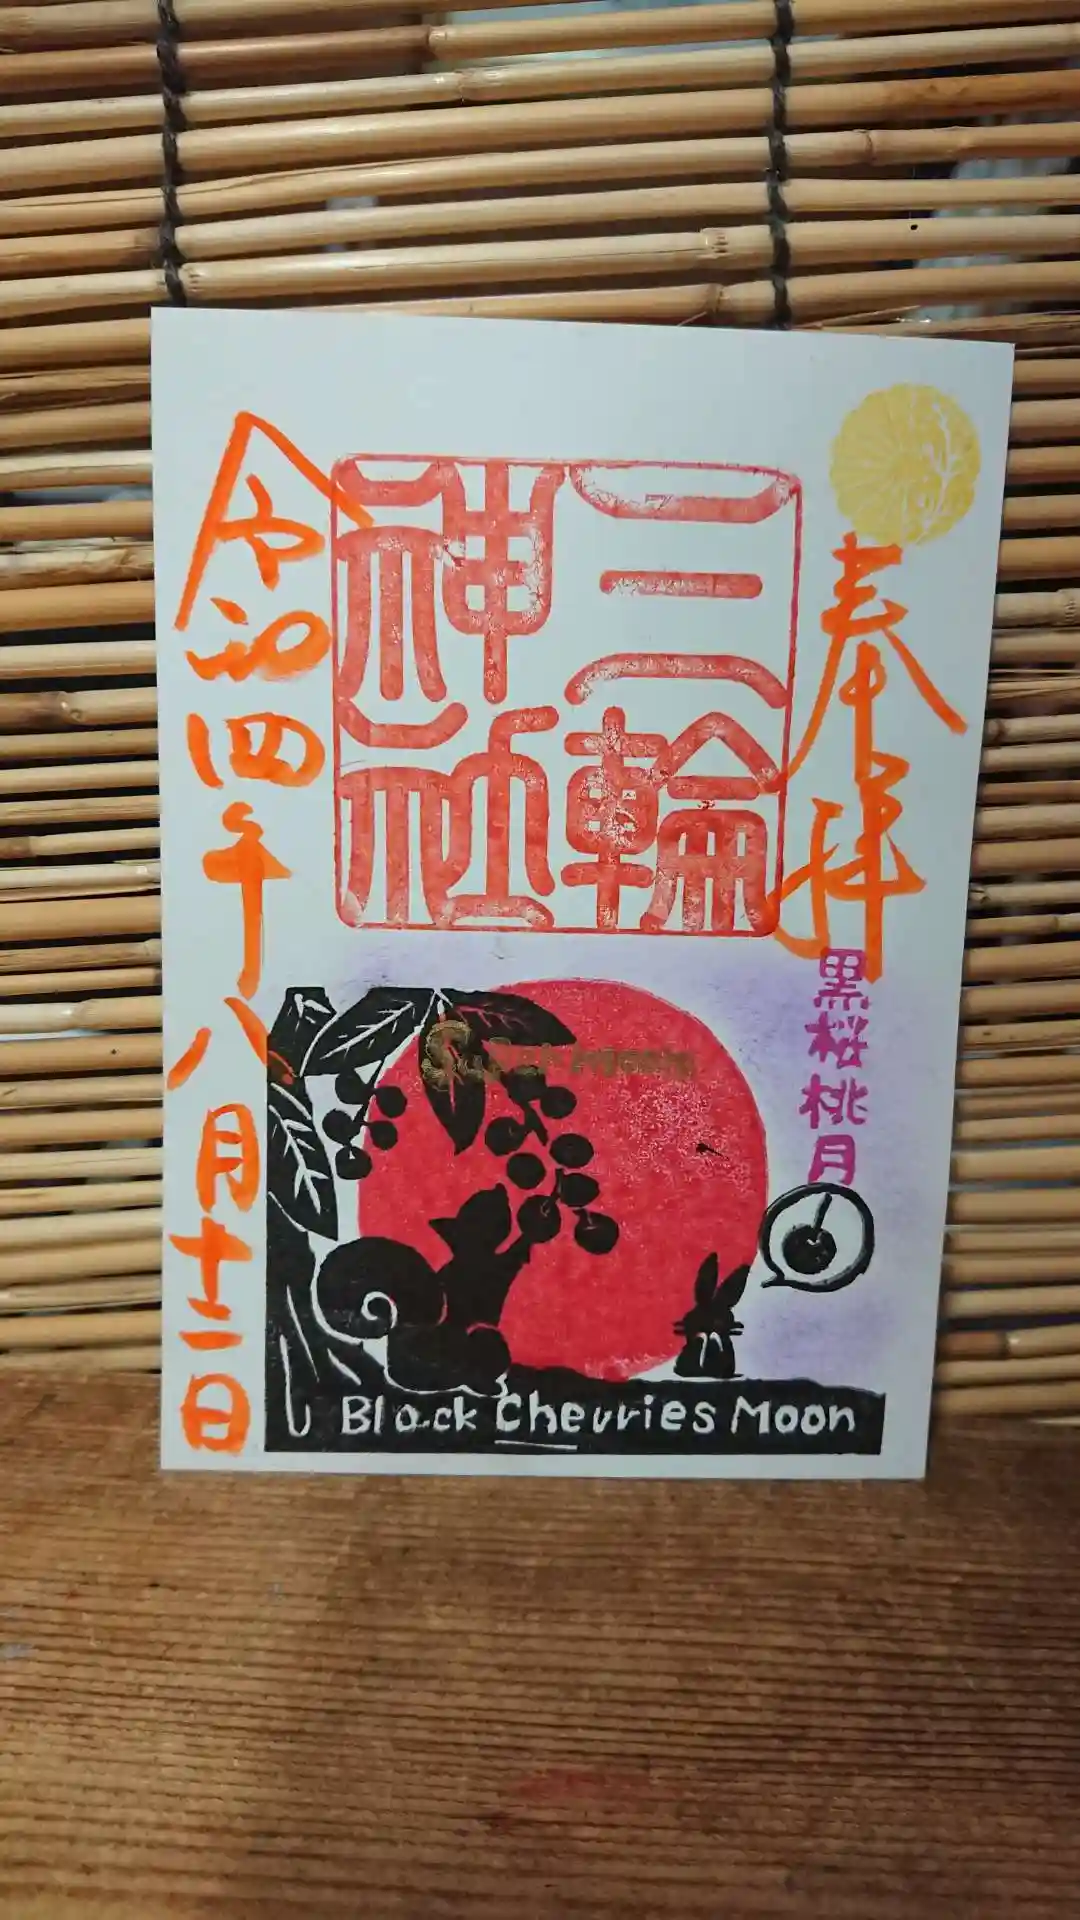 奉拝
黒桜桃月
三輪
神社
令和四年八月十二日
Super moon
Black Cherries Moon